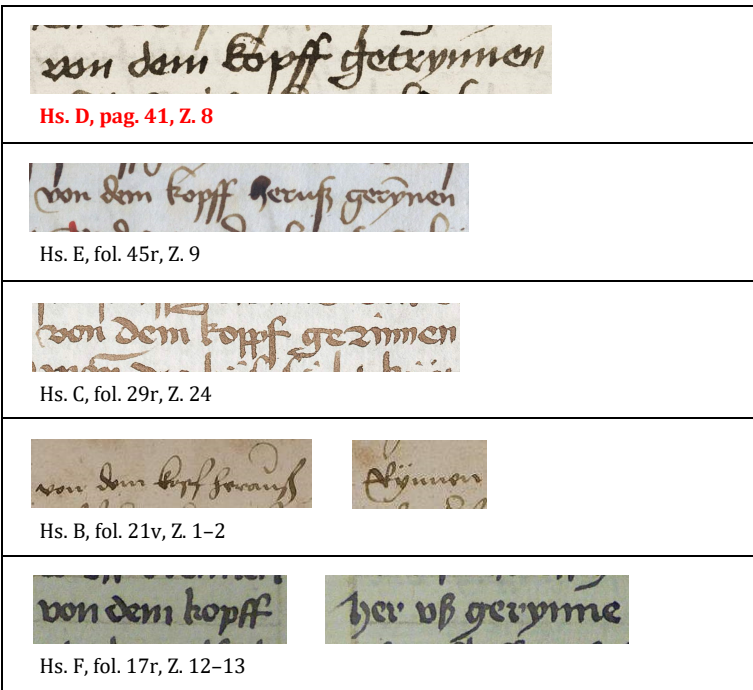 von dem kopff getrynnen
Hs. D, pag. 41, Z. 8
von dem kopff heruß gerÿnen
Hs. E, fol. 45r, Z. 9
von dem koppf gerinnen
Hs. C, fol. 29r, Z. 24
von dem kopf herauß Rÿnnen
Hs. B, fol. 21v, Z. 1–2
von dem kopff her vß gerynne
Hs. F, fol. 17r, Z. 12–13